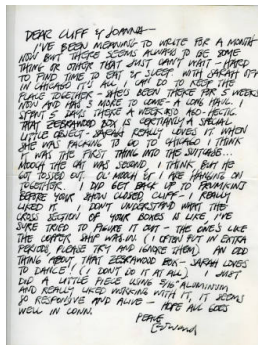 DEAR CLIFF & JOANNE—
I'VE BEEN MEANING TO WRITE FOR A MONTH
NOW BUT THERE SEEMS ALWAYS TO BE SOME
THING OR OTHER THAT JUST CAN'T WAIT – HARD
TO FIND TIME TO EAT OR SLEEP. WITH SARAH OFF
IN CHICAGO IT'S ALL I CAN DO TO KEEP THE
PLACE TOGETHER – SHE'S BEEN THERE FOR 5 WEEKS
NOW AND HAS 3 MORE TO COME – A LONG HAUL. I
SPENT 5 DAYS THERE A WEEK AGO – HECTIC.
THAT ZEBRAWOOD BOX IS CERTAINLY A SPECIAL
LITTLE OBJECT – SARAH REALLY LOVES IT WHEN
SHE WAS PACKING TO GO TO CHICAGO I THINK
IT WAS THE FIRST THING INTO THE SUITCASE.
MOOCH THE CAT WAS SECOND I THINK BUT HE
GOT TOSSED OUT. OL' MOOCH & I ARE HANGING ON
TOGETHER. I DID GET BACK UP TO FRUMKINS
BEFORE YOUR SHOW CLOSED CLIFF – I REALLY
LIKED IT. I DON'T UNDERSTAND WHAT THE
CROSS SECTION OF YOUR BONES IS LIKE, I'VE
SURE TRIED TO FIGURE IT OUT – THE ONE'S LIKE
THE COPPER SHIP WAS IN. (I OFTEN PUT IN EXTRA
PERIODS, PLEASE TRY AND IGNORE THEM) AN ODD
THING ABOUT THAT ZEBRAWOOD BOX – SARAH LOVES
TO DANCE! (I DON'T DO IT AT ALL) I JUST
DID A LITTLE PIECE USING 5/16" ALUMINUM
AND REALLY LIKED WORKING WITH IT, IT SEEMS
SO RESPONSIVE AND ALIVE – HOPE ALL GOES
WELL IN CONN.
PEACE